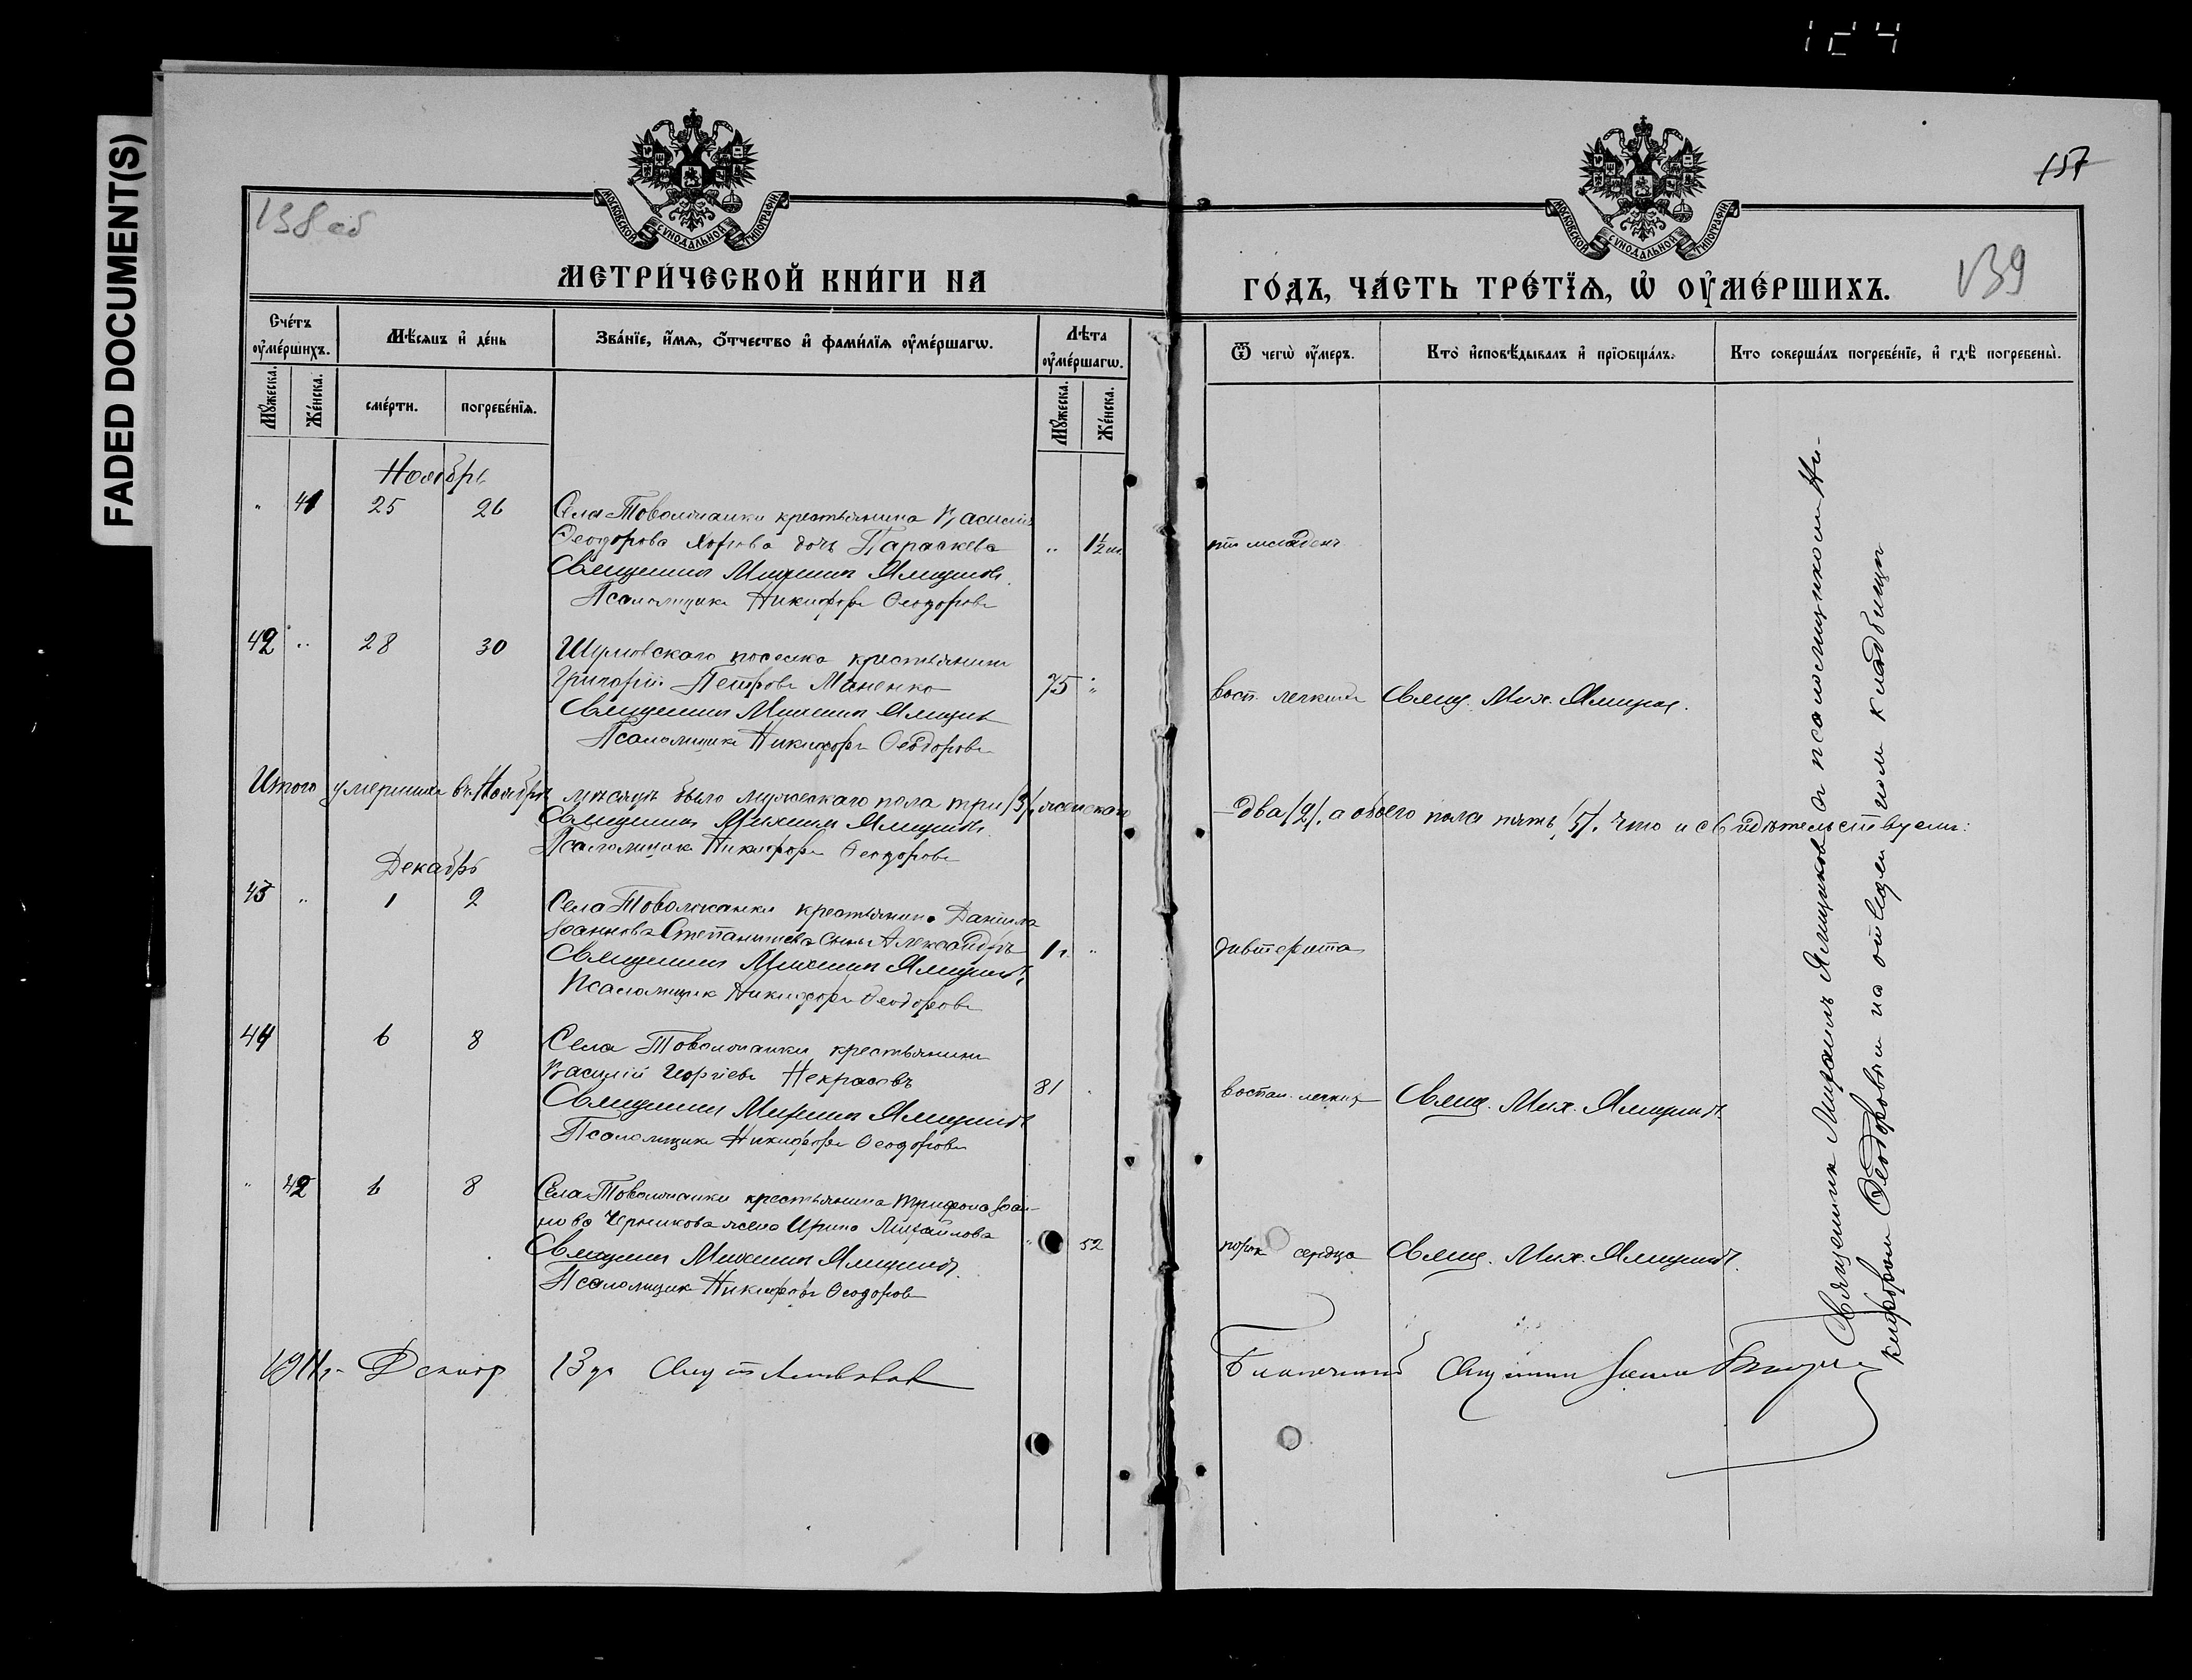 124
FADED DOCUMENT(S)
МОСКОВСКОЙ СУНОДАЛЬНОЙ ТИПОГРАФІИ
138 об
МЕТРИ́ЧЕСКОЙ КНИ́ГИ НА
Сче́тъ ᲂу҆ме́ршихъ.
Мѣ́сяцъ и҆ де́нь
Зва́нїе, и҆́мѧ, ѻ҆́тчество и҆ фами́лїѧ ᲂу҆ме́ршагѡ.
Лѣ́та ᲂу҆ме́ршагѡ.
Мꙋ́жеска.
Же́нска.
сме́рти.
погребе́нїѧ.
Мꙋ́жеска.
Же́нска.
Ноябрь
" 41 25 26 Села Товолжанки крестьянина Василія
Ѳеодорова дочь Параскева " 1½ м.
Священникъ Михаилъ Ямщиковъ
Псаломщикъ Никифоръ Ѳеодоровъ
42 " 28 30 поселка крестьянинъ
Григорій Петровъ Маненко 75 "
Священникъ Михаилъ Ямщиковъ
Псаломщикъ Никифоръ Ѳеодоровъ
Итого умершихъ въ Ноябрѣ мѣсяцѣ было мужескаго пола три /3/, женскаго
Священникъ Михаилъ Ямщиковъ
Псаломщикъ Никифоръ Ѳеодоровъ
Декабрь
43 " 1 2 Села Товолжанки крестьянина Даніила
Іоаннова сынъ Александръ 1 г. "
Священникъ Михаилъ Ямщиковъ
Псаломщикъ Никифоръ Ѳеодоровъ
44 6 8 Села Товолжанки крестьянинъ
Василій Георгіевъ Некрасовъ 81
Священникъ Михаилъ Ямщиковъ
Псаломщикъ Никифоръ Ѳеодоровъ
" 42 6 8 Села Товолжанки крестьянина Трифона Іоан-
нова Черникова жена Ирина Михайлова " 52
Священникъ Михаилъ Ямщиковъ
Псаломщикъ Никифоръ Ѳеодоровъ
1911 г. Декабр 13 дн
157
МОСКОВСКОЙ СУНОДАЛЬНОЙ ТИПОГРАФІИ
139
ГО́ДЪ, ЧА́СТЬ ТРЕ́ТЇѦ, Ѡ҆ ОУ҆МЕ́РШИХЪ.
Ѿ чегѡ̀ ᲂу҆́меръ.
Кто̀ и҆сповѣ́дывалъ и҆ прїѡбща́лъ.
Кто соверша́лъ погребе́нїе, и҆ гдѣ̀ погребены̀.
младен.
восп. легкихъ Свящ. Мих. Ямщиков.
– два /2/, а обоего пола пять /5/. Что и свидѣтельствуемъ:
дифтерита
воспал. легкихъ Свящ. Мих. Ямщиковъ.
порок сердца Свящ. Мих. Ямщиковъ.
Священникъ Михаилъ Ямщиковъ и псаломщикомъ Ни-
кифоромъ Ѳеодоровымъ на кладбищѣ
Благочинный Священникъ Іоаннъ